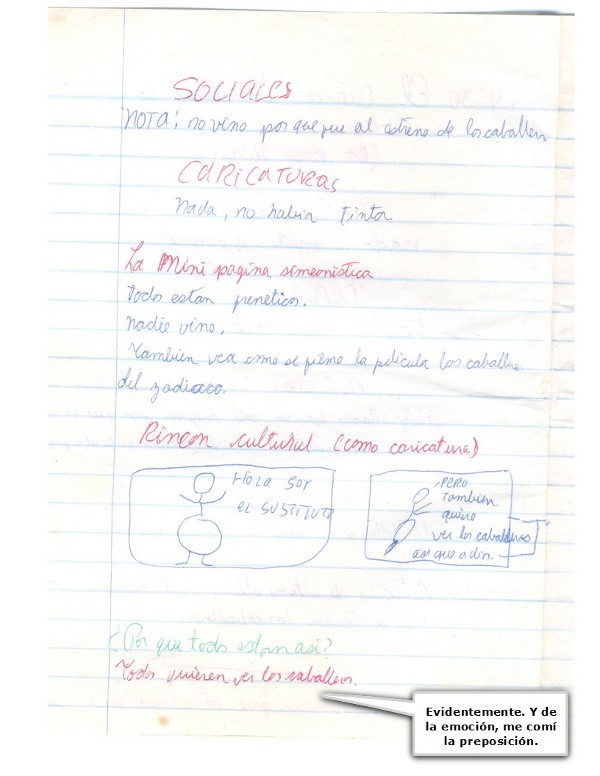 SOCIALES
NOTA: no vino porque fue al estreno de los caballeros
CARICATURAS
Nada, no habia tinta.
La Mini pagina simeonistica
Todos estan freneticos.
Nadie vino.
Tambien vea como se filmo la pelicula los caballeros
del zodiaco.
Rincon cultural (como caricatura)
HOLA SOY
EL SUSTITUTO
PERO
Tambien
quiero
ver los caballeros
asi que adios.
¿Por que todos estan asi?
Todos quieren ver los caballeros.
Evidentemente. Y de
la emoción, me comí
la preposición.